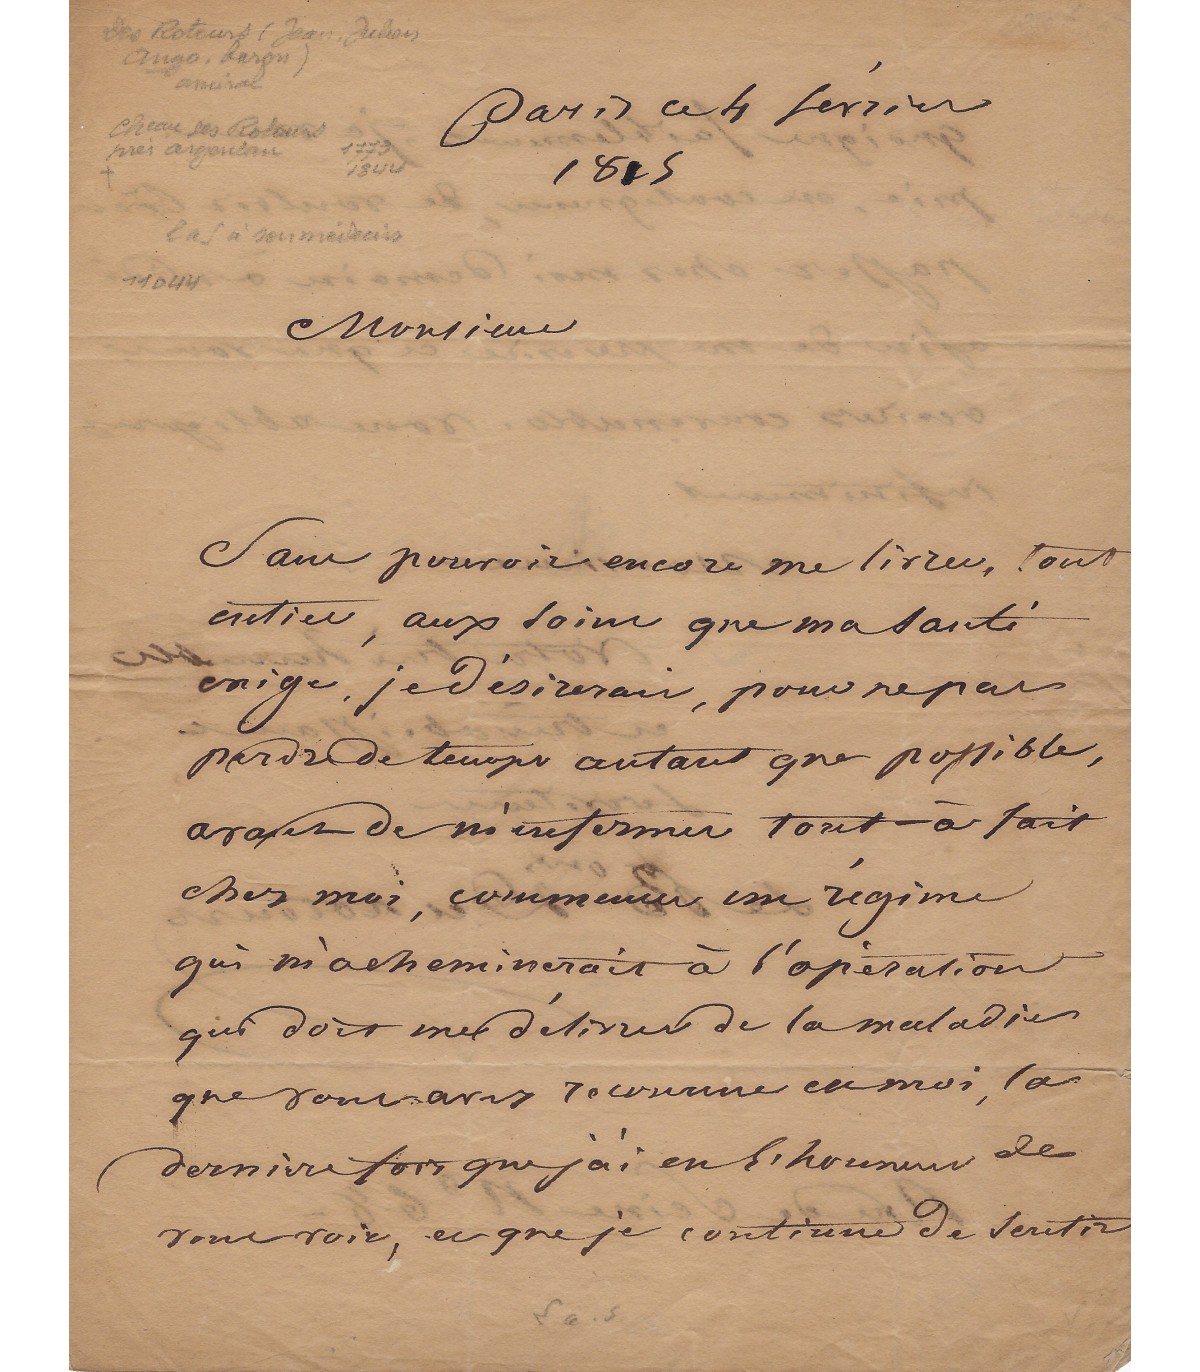 des Rotours (Jean, Julien
Ango. baron)
amiral
cheau des Rotours
près argentan 1773
+ 1844
l a s à son médecin
11044
Paris ce 4 février
1815
Monsieur
Sans pouvoir encore me livrer, tout
entier, aux soins que ma santé
exige, je désirerais, pour ne pas
perdre de temps autant que possible,
avant de m'enfermer tout-à fait
chez moi, commencer un régime
qui m'acheminerait à l'opération
qui doit me délivrer de la maladie
que vous avez reconnue en moi, la
dernière fois que j'ai eu l'honneur de
vous voir, et que je continue de sentir